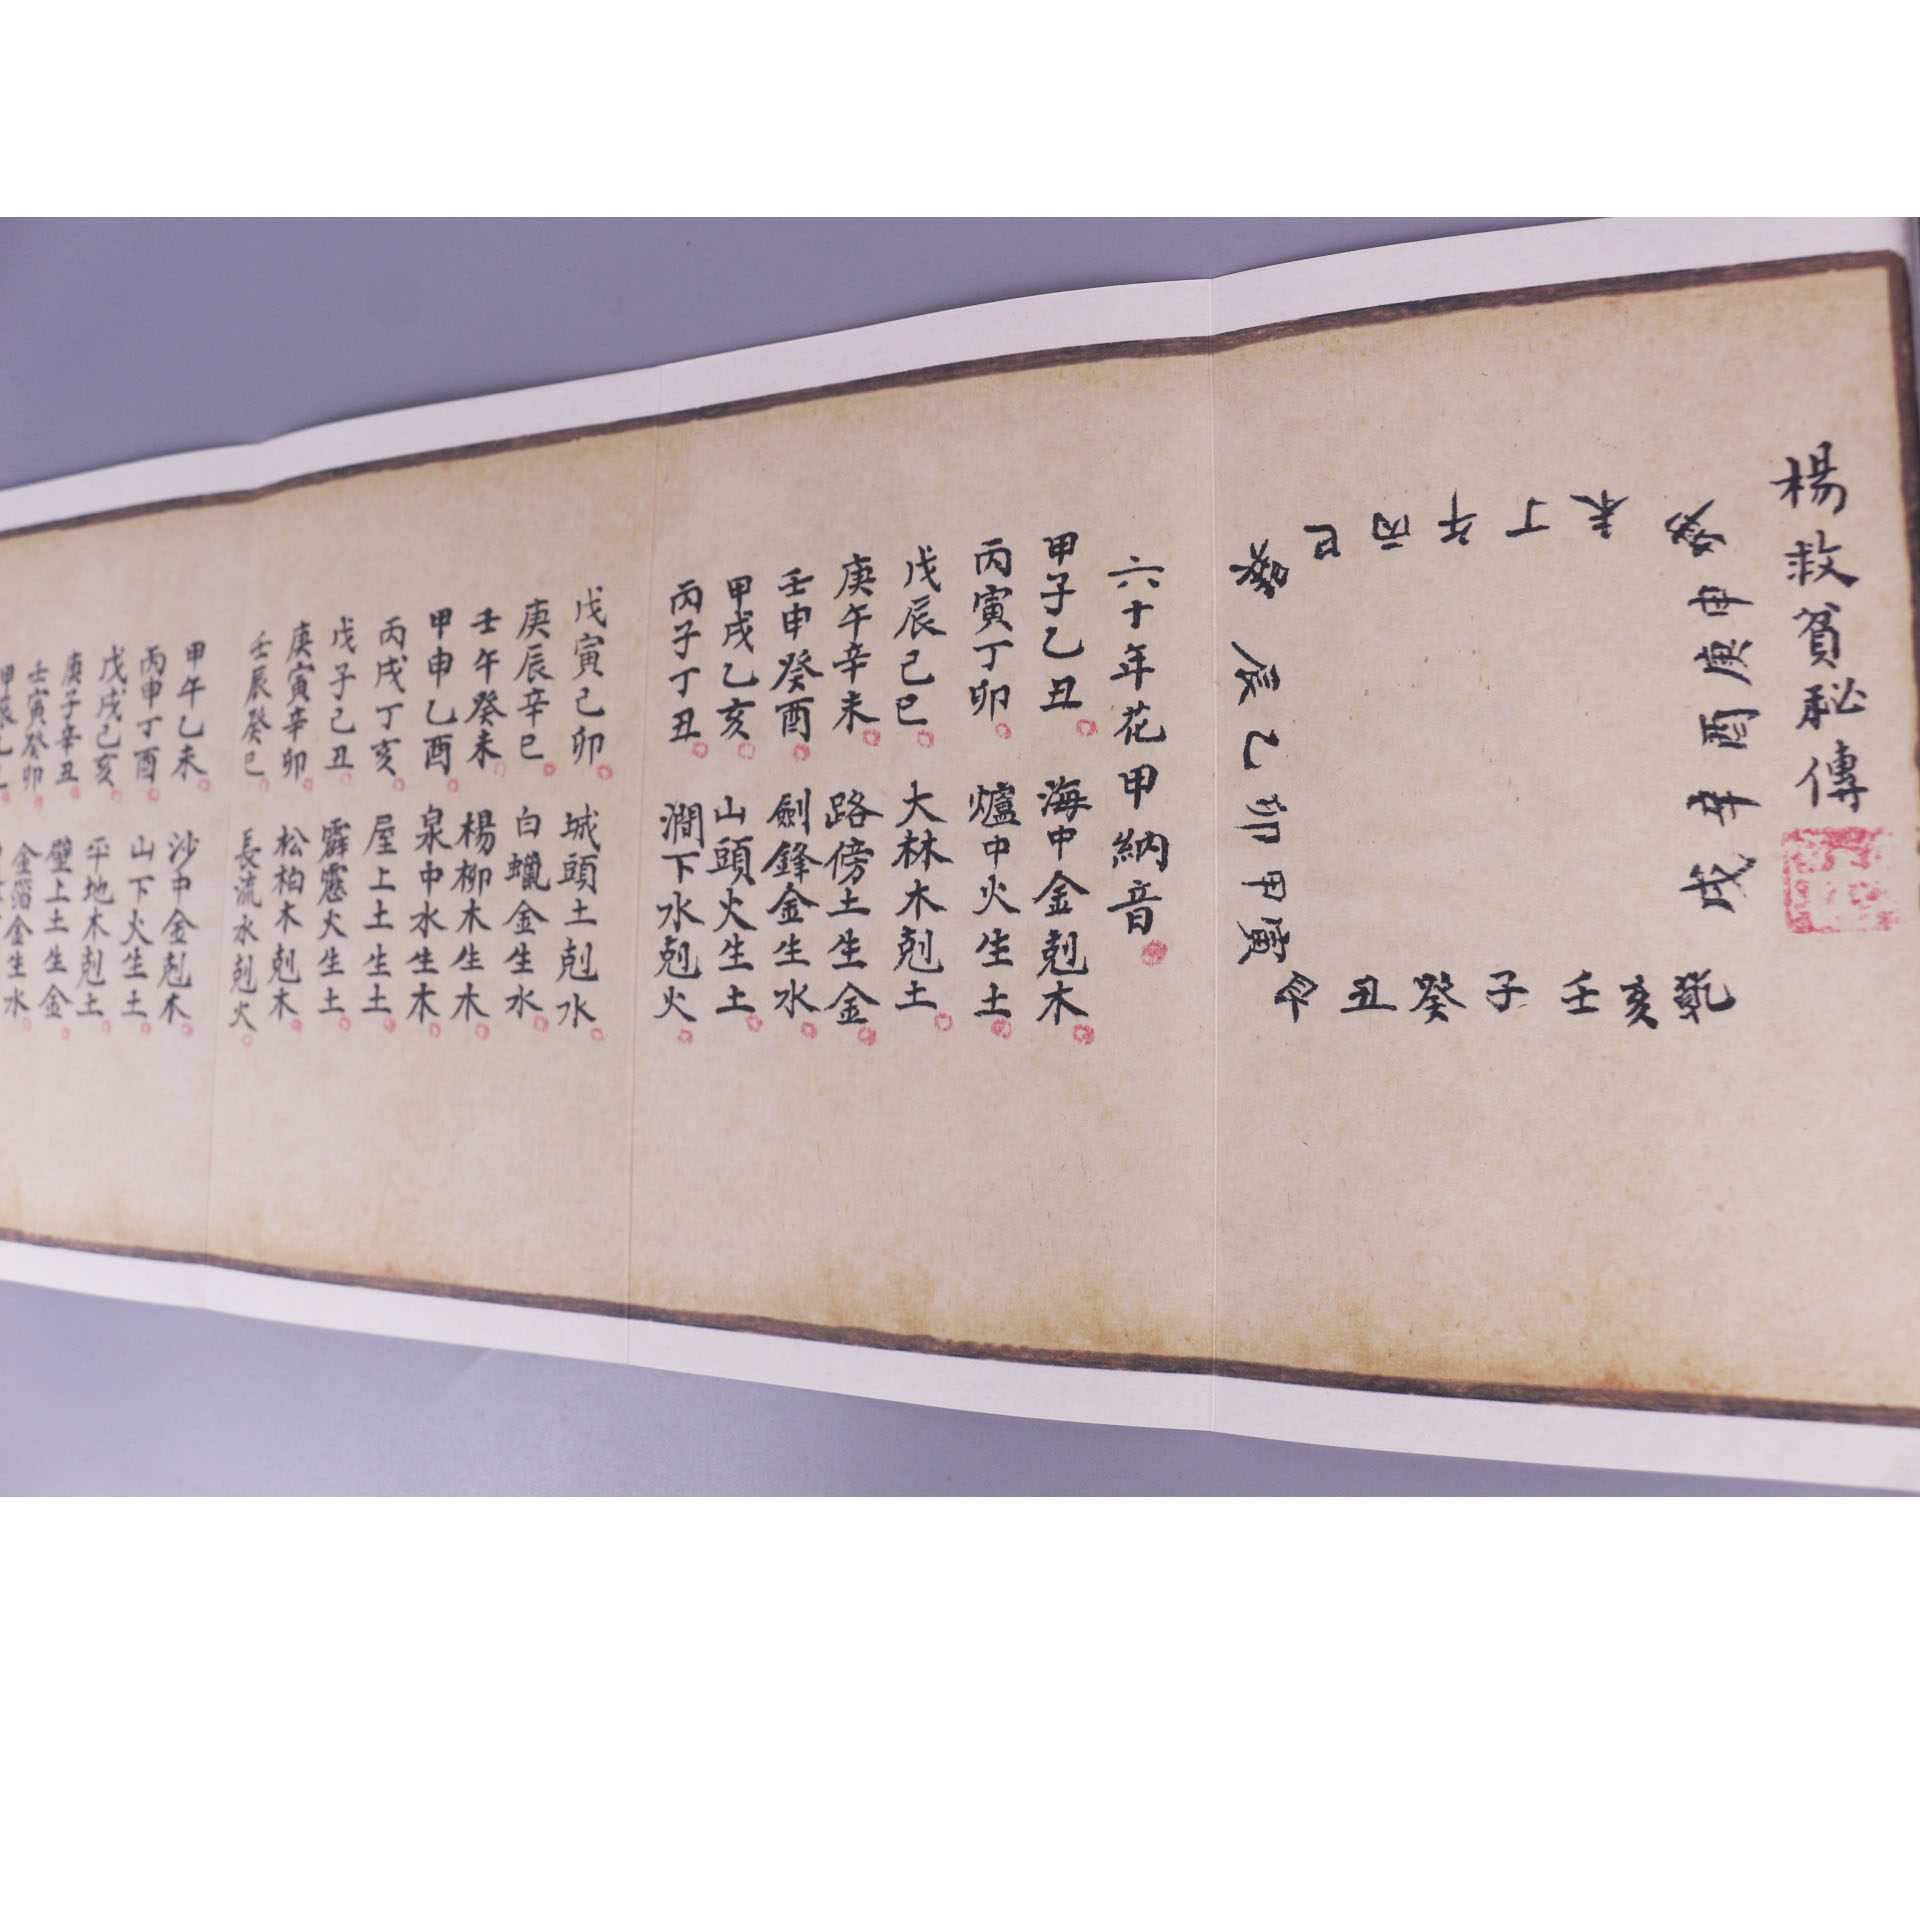 楊救貧秘傳
未丁午丙巳
申庚酉辛戌
辰乙卯甲寅
丑癸子壬亥乾
六十年花甲納音
甲子乙丑 海中金剋木
丙寅丁卯 爐中火生土
戊辰己巳 大林木剋土
庚午辛未 路傍土生金
壬申癸酉 劍鋒金生水
甲戌乙亥 山頭火生土
丙子丁丑 澗下水剋火
戊寅己卯 城頭土剋水
庚辰辛巳 白蠟金生水
壬午癸未 楊柳木生木
甲申乙酉 泉中水生木
丙戌丁亥 屋上土生土
戊子己丑 霹靂火生土
庚寅辛卯 松柏木剋木
壬辰癸巳 長流水剋火
甲午乙未 沙中金剋木
丙申丁酉 山下火生土
戊戌己亥 平地木剋土
庚子辛丑 壁上土生金
壬寅癸卯 金箔金生水